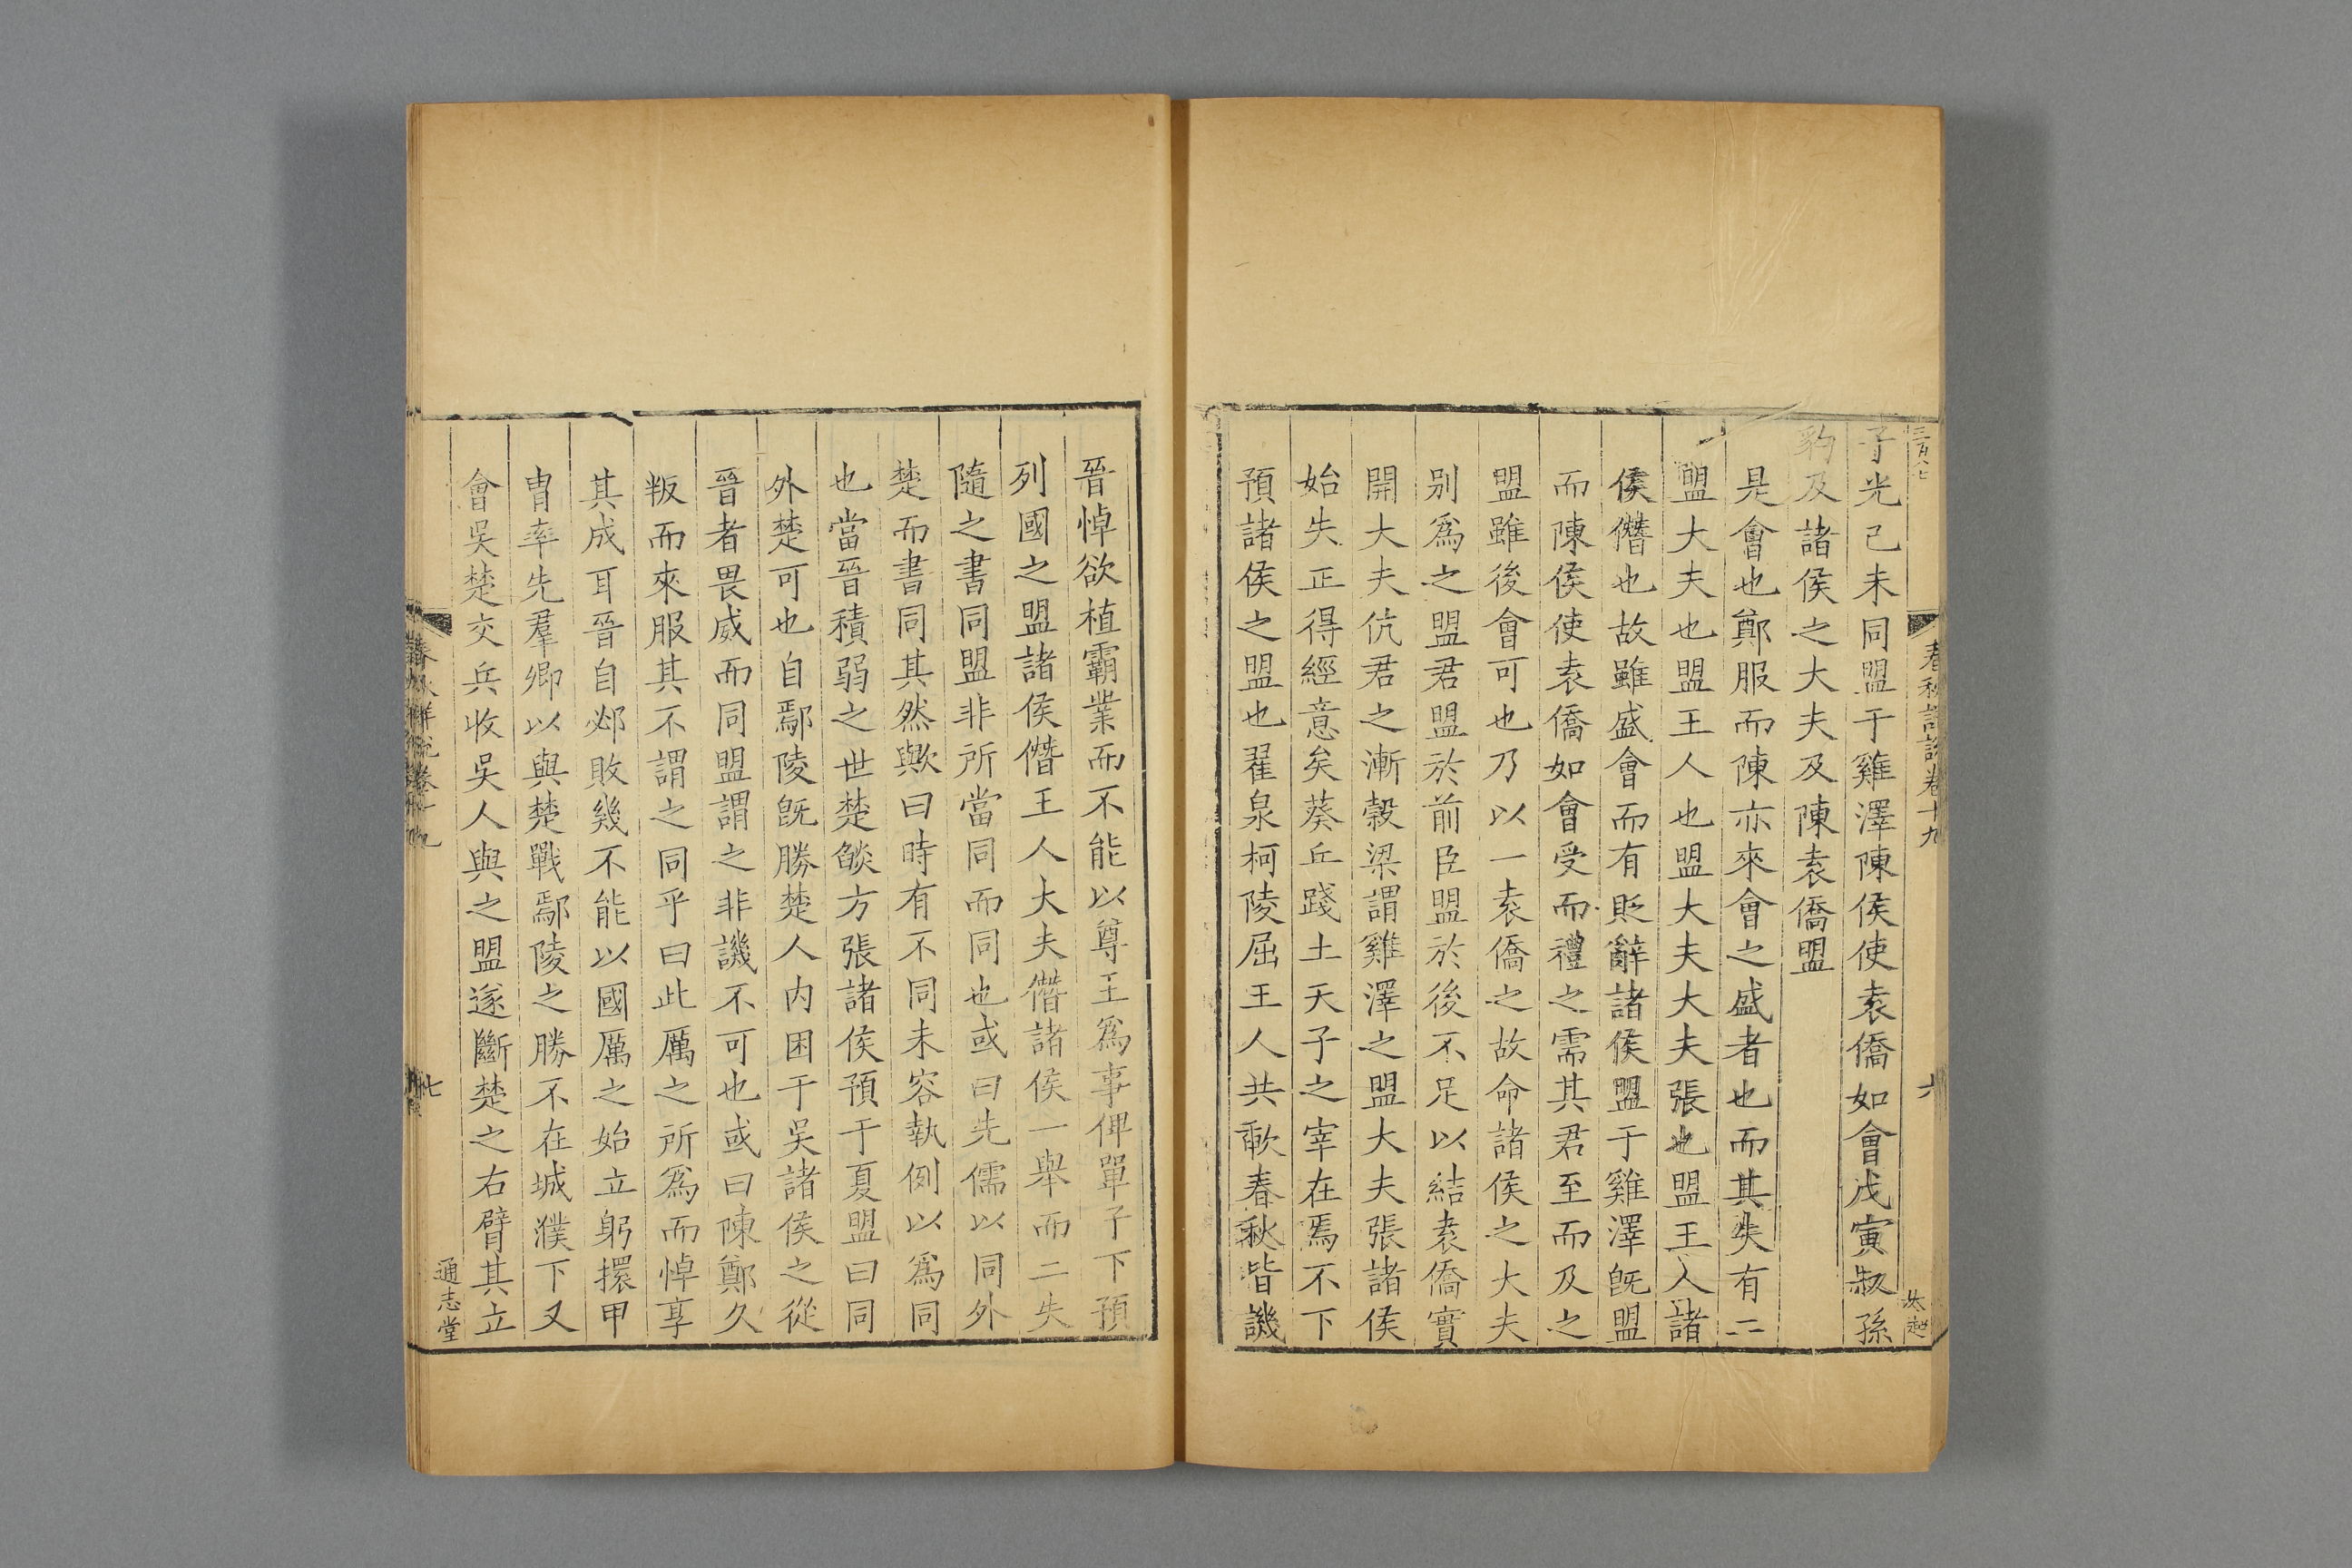 春秋詳說卷十九
六
子光己未同盟于雞澤陳侯使袁僑如會戊寅叔孫
豹及諸侯之大夫及陳袁僑盟
是會也鄭服而陳亦來會之盛者也而其失有二
盟大夫也盟王人也盟大夫大夫張也盟王人諸
侯僭也故雖盛會而有貶辭諸侯盟于雞澤旣盟
而陳侯使袁僑如會受而禮之需其君至而及之
盟雖後會可也乃以一袁僑之故命諸侯之大夫
別爲之盟君盟於前臣盟於後不足以結袁僑實
開大夫伉君之漸榖梁謂雞澤之盟大夫張諸侯
始失正得經意矣葵丘踐土天子之宰在焉不下
預諸侯之盟也翟泉柯陵屈王人共歃春秋皆譏
晉悼欲植霸業而不能以尊王爲事俾單子下預
列國之盟諸侯僭王人大夫僭諸侯一舉而二失
隨之書同盟非所當同而同也或曰先儒以同外
楚而書同其然歟曰時有不同未容執例以爲同
也當晉積弱之世楚燄方張諸侯預于夏盟曰同
外楚可也自鄢陵旣勝楚人內困于吳諸侯之從
晉者畏威而同盟謂之非譏不可也或曰陳鄭久
叛而來服其不謂之同乎曰此厲之所爲而悼享
其成耳晉自邲敗幾不能以國厲之始立躬擐甲
冑率先羣卿以與楚戰鄢陵之勝不在城濮下又
會吳楚交兵收吳人與之盟遂斷楚之右臂其立
春秋詳說卷十九
七
通志堂